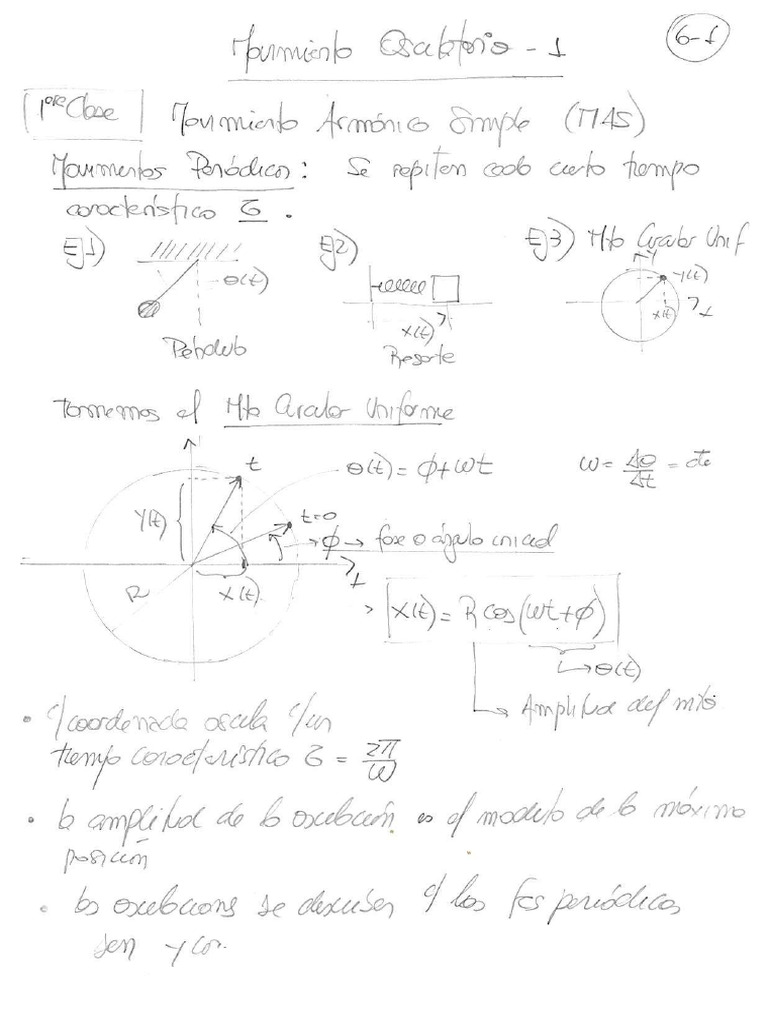 Movimiento Oscilatorio - 1
6-1
1era Clase
Movimiento Armónico Simple (MAS)
Movimientos Periódicos: Se repiten cada cierto tiempo
característico τ.
Ej1)
θ(t)
Péndulo
Ej2)
x(t)
Resorte
Ej3) Mto Circular Unif
y
y(t)
x(t)
x
Tomemos el Mto Circular Uniforme
t
θ(t) = ϕ+ωt
ω = Δθ/Δt = cte
y(t)
t=0
ϕ → fase o ángulo inicial
R
x(t)
x
x(t) = R cos(ωt+ϕ)
θ(t)
Amplitud del mto
• c/coordenada oscila c/un
tiempo característico τ = 2π/ω
• la amplitud de la oscilación es el modulo de la máxima
posición
• las oscilaciones se describen c/ las fcs periódicas
sen y cos.